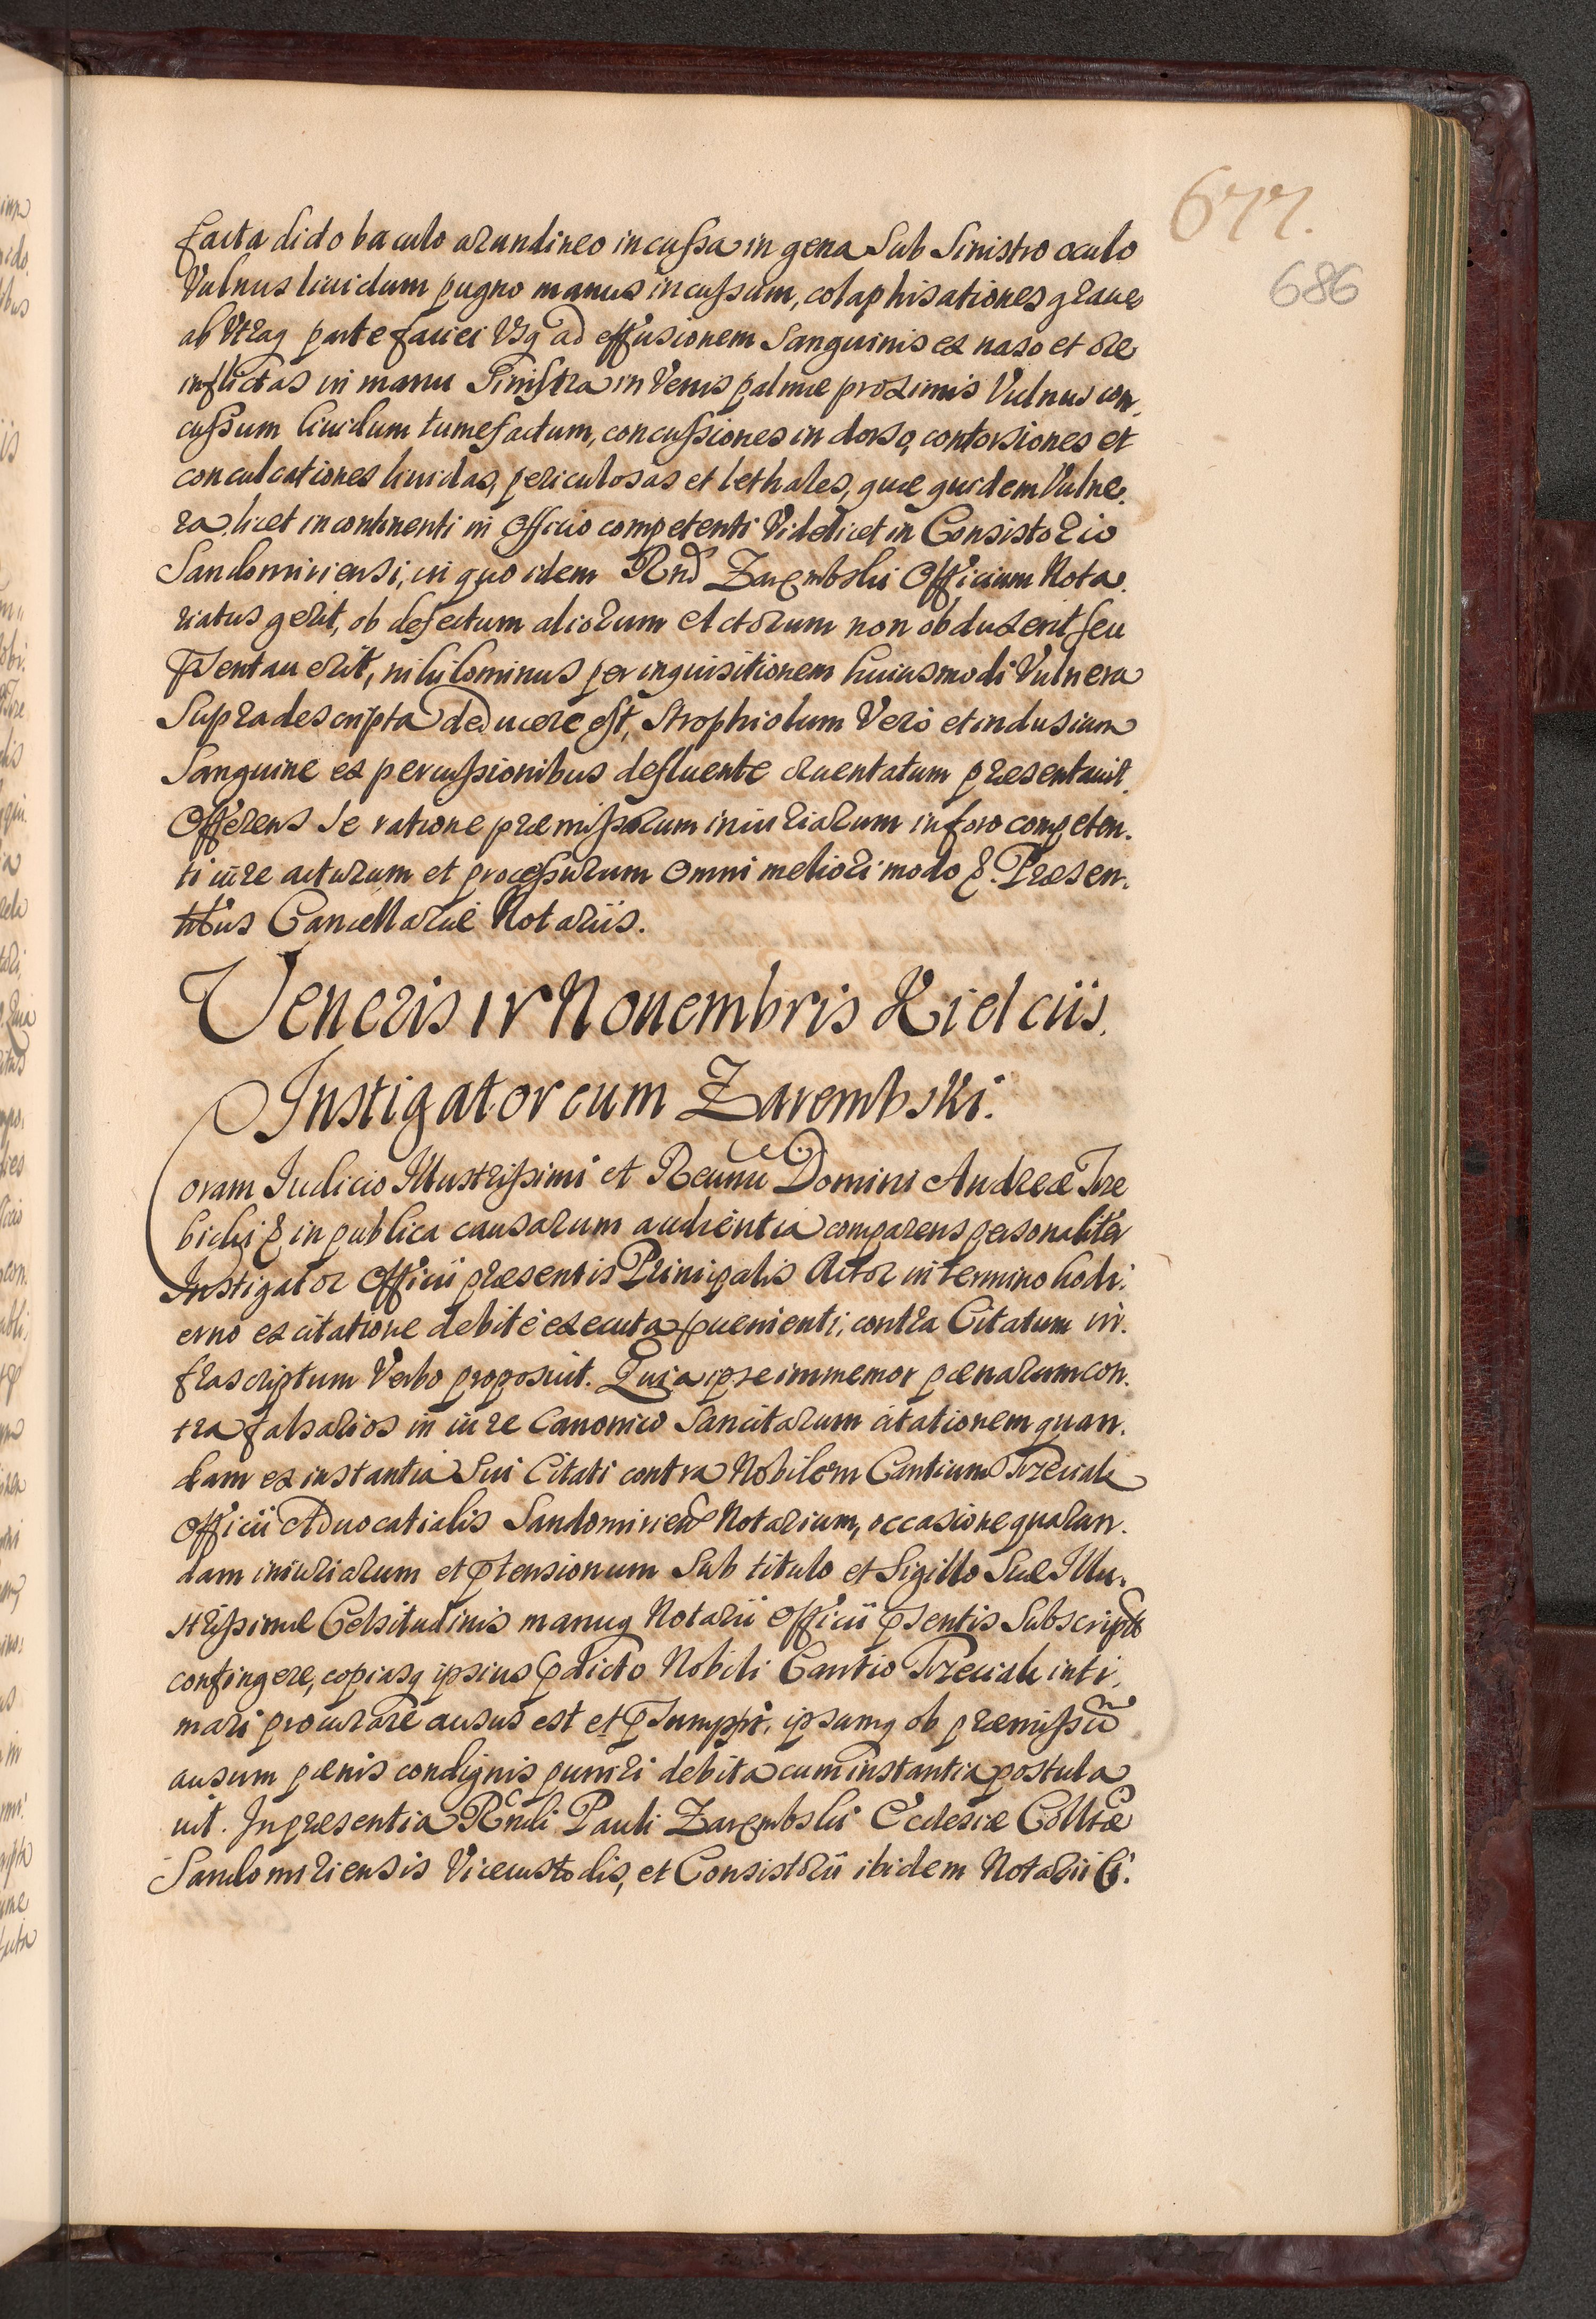 677.
686
facta dicto baculo arundineo incussa in gena Sub Sinistro oculo
Vulnus liuidum pugno manus incussum, colaphisationes graues
ab Vtraq parte faciei Vsq ad effusionem Sanguinis ex naso et ore
inflictas in manu Sinistra in Venis palmæ proximis Vulnus con.
cussum liuidum tumefactum, concussiones in dorso, contorsiones et
conculcationes liuidas, periculosas et lethales, quæ quidem Vulne.
ra licet incontinenti in Officio competenti Videlicet in Consistorio
Sandomiriensi, in quo idem Rnd Zarembski Officium Nota.
riatus gerit, ob defectum aliorum Actorum non obduxerit seu
pntauerit, nihilominus per inquisitionem huiusmodi Vulnera
Supradescripta deducere est, Strophiolum Vero et indusium
Sanguine ex percussionibus defluente cruentatum præsentauit.
Offerens Se ratione præmissorum iniuriarum in foro competen.
ti iure acturum et processurum omni meliori modo &. Præsen.
tibus Cancellariæ Notariis.
Veneris IV Nouembris Kielciis.
Instigator cum Zarembski.
Coram Iudicio Illustrissimi et Reumi Domini Andreæ Trze
bicki & in publica causarum audientia comparens personaliter
Instigator Officii præsentis Principalis Actor in termino hodi.
erno ex citatione debite executa puenienti, contra Citatum in.
frascriptum Verbo proposuit. Quia ipse immemor pœnarum con.
tra falsarios in iure Canonico Sancitarum citationem quan.
dam ex instantia Sui Citati contra Nobilem Cantium Trzeciak
Officii Aduocatialis Sandomirien Notarium, occasione quarun.
dam iniuriarum et ptensionum Sub titulo et Sigillo Suæ Illu.
strissimæ Celsitudinis manuq Notarii Officii psentis Subscripto
confingere, copiasq ipsius pdicto Nobili Cantio Trzeciak inti.
mari procurare ausus est et psumpsit, ipsumq ob præmissũ
ausum pœnis condignis puniri debita cum instantia postula
uit. In præsentia Rndi Pauli Zarembski Ecclesiæ Colltæ
Sandomiriensis Vicecustodis, et Consistorii ibidem Notarii Ci.